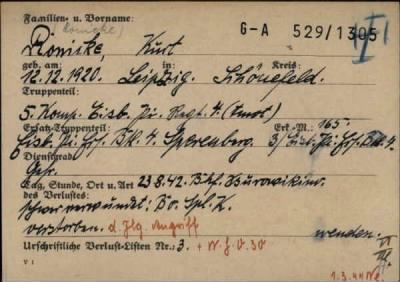 Familien- u. Vorname: G-A 529/1305
Kurt
geb. am: in: Kreis:
12.12.1920. Leipzig. Schönefeld.
Truppenteil:
5. Komp. Eisb. Pi. Regt. 4.
Ersatz-Truppenteil: Erk.-M.: 165.
Eisb. Pi. Ers. Btl. 4. Sperenberg. 3/Eisb. Pi. Ers. Btl. 4.
Dienstgrad:
Gefr.
Tag, Stunde, Ort u. Art 23.8.42. Bhf.
des Verlustes:
schwer verwundet: Bo. Spl. K.
verstorben. d. Flg. Angriff wenden.
Urschriftliche Verlust-Listen Nr.: 3. + W.F.O. 30
V 1 1.3.44